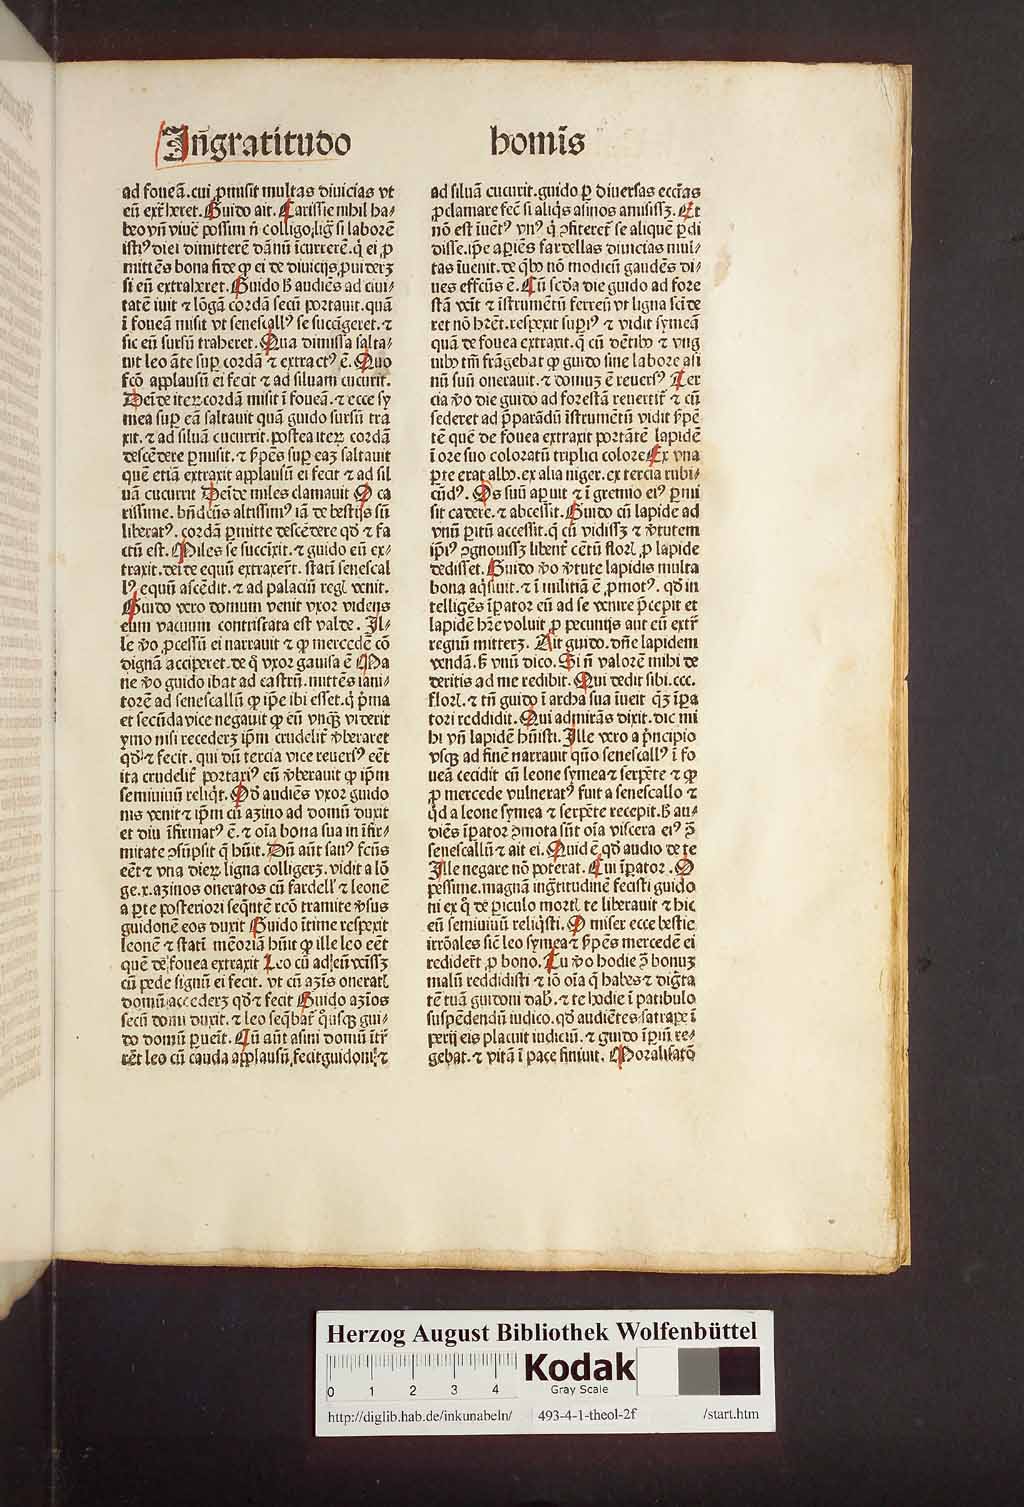 In̄gratitudo homīs
ad foueā. cui ꝓmisit multas diuicias vt
eū extͬheret. Guido ait. Carissie nihil ha⸗
beo vñ viuē possim ñ colligo; ligͣ si laborē
istiꝰ diei dimitterē dānū īcurrerē. qͥ ei ꝓ
mittēs bona fide ꝙ ei de diuicijs ꝓuiderꝫ
si eū extraheret. Guido ħ audiēs ad ciui⸗
tatē iuit ⁊ lōgā cordā secū portauit. quā
ī foueā misit vt senescallꝰ se succīgeret. ⁊
sic eū sursū traheret. Qua dimissa salta⸗
uit leo āte suꝑ cordā ⁊ extractꝰ ē. Quo
fcō applausū ei fecit ⁊ ad siluam cucurit.
Deīde iteꝝ cordā misit ī foueā. ⁊ ecce sy
mea suꝑ eā saltauit quā guido sursū tra
xit. ⁊ ad siluā cucurrit. postea iteꝝ cordā
descēdere ꝑmisit. ⁊ ẜpēs suꝑ eaꝫ saltauit
quē etiā extraxit applausū ei fecit ⁊ ad sil
uā cucurrit Deīde miles clamauit O ca
rissime. bn̄dcūs altissimꝰ iā de bestijs sū
liberatꝰ. cordā ꝑmitte descēdere qd̄ ⁊ fa
ctū est. Miles se succīxit. ⁊ guido eū ex⸗
traxit. deīde equū extraxerūt. statī senescal
lꝰ equū ascēdit. ⁊ ad palaciū regꝭ venit.
Guido vero domum venit vxor videns
eum vacuum contristata est valde. Il⸗
le ꝟo ꝓcessū ei narrauit ⁊ ꝙ mercedē cō
dignā acciperet. de qͣ vxor gauisa ē Ma
ne ꝟo guido ibat ad castrū. mittēs iani⸗
torē ad senescallū ꝙ ip̄e ibi esset. qͥ pͥma
et secūda vice negauit ꝙ eū vnqͣꝫ viderit
ymo nisi recederꝫ ip̄m crudelit̉ ꝟberaret
qd̄ ⁊ fecit. qui dū tercia vice reuersꝰ eēt
ita crudelit̉ portariꝰ eū ꝟberauit ꝙ ip̄m
semiuiuū reliqͥt. Qd̄ audiēs vxor guido
nis venit ⁊ ip̄m cū azino ad domū duxit
et diu īfirmatꝰ ē. ⁊ oīa bona sua in īfir⸗
mitate ꝯsūpsit qͥ hūit. Dū aūt sanꝰ fcūs
eēt ⁊ vna dieꝝ ligna colligerꝫ. vidit a lō
ge. x. azinos oneratos cū fardelꝉ ⁊ leonē
a ꝑte posteriori seqūtē rcō tramite ꝟsus
guidonē eos duxit Guido ītime respexit
leonē ⁊ statī memoriā hūit ꝙ ille leo eēt
quē de fouea extraxit Leo cū ad eū venissꝫ
cū pede signū ei fecit. vt cū azīs oneratꝭ
domū accederꝫ qd̄ ⁊ fecit Guido azīos
secū domū duxit. ⁊ leo seqͤbat̉ qͦusqꝫ gui⸗
do domū ꝑueīt. Cū aūt asini domū ītr̄
rēt leo cū cauda applausū fecit guidoni. ⁊
ad siluā cucurit. guido ꝑ diuersas eccͭas
ꝓclamare fecͭ si aliqͥs asinos amisissꝫ. Et
nō est iuētꝰ vnꝰ qͥ ꝯfiteret̉ se aliquē ꝑdi
disse. ip̄e aꝑiēs fardellas diuicias mul⸗
tas īuenit. de qͥbꝰ nō modicū gaudēs di⸗
ues effcūs ē. Cū scd̄a die guido ad fore
stā veīt ⁊ īstrumētū ferreū vt ligna scīde
ret nō hr̄et. respexit supiꝰ ⁊ vidit symeā
quā de fouea extraxit. qͥ cū dētibꝰ ⁊ vng
nibꝰ tm̄ frāgebat ꝙ guido sine labore asi
nū suū onerauit. ⁊ domuꝫ ē reuersꝰ Ter
cia ꝟo die guido ad forestā reuertit̉ ⁊ cū
sederet ad ꝑparādū īstrumētū vidit ẜpē
tē quē de fouea extraxit portātē lapidē
ī ore suo coloratū triplici colore Ex vna
ꝑte erat albꝰ. ex alia niger. ex tercia rubi⸗
cūdꝰ. Os suū aꝑuit ⁊ ī gremio eiꝰ ꝑmi
sit cadere. ⁊ abcessit. Guido cū lapide ad
vnū ꝑitū accessit. qͥ cū vidissꝫ ⁊ ꝟtutem
ip̄iꝰ ꝯgnouissꝫ libent̉ cētū florꝭ ꝓ lapide
dedisset. Guido ꝟo ꝟtute lapidis multa
bona aqͥsiuit. ⁊ ī militiā ē ꝓmotꝰ. qd̄ in
telligēs īꝑator eū ad se venire p̄cepit et
lapidē hr̄e voluit ꝓ pecunijs aut eū extͬ
regnū mitterꝫ. Ait guido. dn̄e lapidem
vendā. ẜꝫ vnū dico. Si ñ valorē mihi de
deritis ad me redibit. Qui dedit sibi. ccc.
florꝭ. ⁊ tn̄ guido ī archa sua īueīt qͣꝫ īꝑa
tori reddidit. Qui admirās dixit. dic mi
hi vñ lapidē hūisti. Ille vero a pͥncipio
vsqꝫ ad finē narrauit qͫo senescallꝰ ī fo
ueā cecidit cū leone symea ⁊ serpēte ⁊ ꝙ
ꝓ mercede vulneratꝰ fuit a senescallo ⁊
qͥd a leone symea ⁊ serpēte recepit. ħ au⸗
diēs īꝑator ꝯmota sūt oīa viscera eiꝰ ꝯͣ
senescallū ⁊ ait ei. Quid ē qd̄ audio de te
Ille negare nō poterat. Cui īꝑator. O
pessime. magnā ingͣtitudinē fecisti guido
ni ex qͦ de ꝑiculo mortꝭ te liberauit ⁊ hic
eū semiuiuū reliqͥsti. O miser ecce bestie
irrōales sicͭ leo symea ⁊ ẜpēs mercedē ei
redider̄t ꝓ bono. Tu ꝟo hodie ꝓ bonuꝫ
malū reddidisti ⁊ iō oīa qͥ habes ⁊ dignͭa
tē tuā guidoni dabo. ⁊ te hodie ī patibulo
suspēdendū iudico. qd̄ audiētes satrape ī
perij eis placuit iudiciū. ⁊ guido īꝑiū re⸗
gebat. ⁊ vitā ī pace finiuit. Moralisatō
Herzog August Bibliothek Wolfenbüttel
0 1 2 3 4
Kodak
Gray Scale
http://diglib.hab.de/inkunabeln/ 493-4-1-theol-2f /start.htm